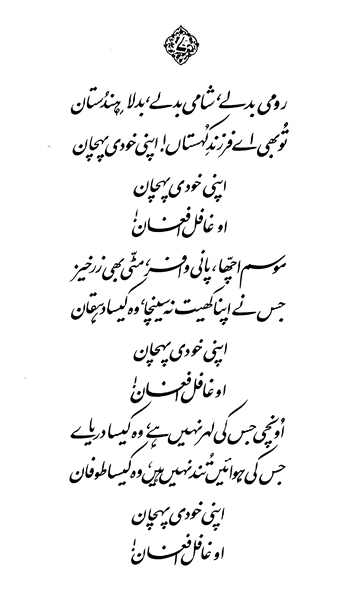 رومی بدلے، شامی بدلے، بدلا ہندستان
تُو بھی اے فرزندِ کُہستاں! اپنی خودی پہچان
اپنی خودی پہچان
او غافل افغان!
موسم اچھّا، پانی وافر، مٹّی بھی زرخیز
جس نے اپنا کھیت نہ سینچا، وہ کیسا دہقان
اپنی خودی پہچان
او غافل افغان!
اُونچی جس کی لہر نہیں ہے، وہ کیسا دریاے
جس کی ہوائیں تُند نہیں ہیں، وہ کیسا طوفان
اپنی خودی پہچان
او غافل افغان!